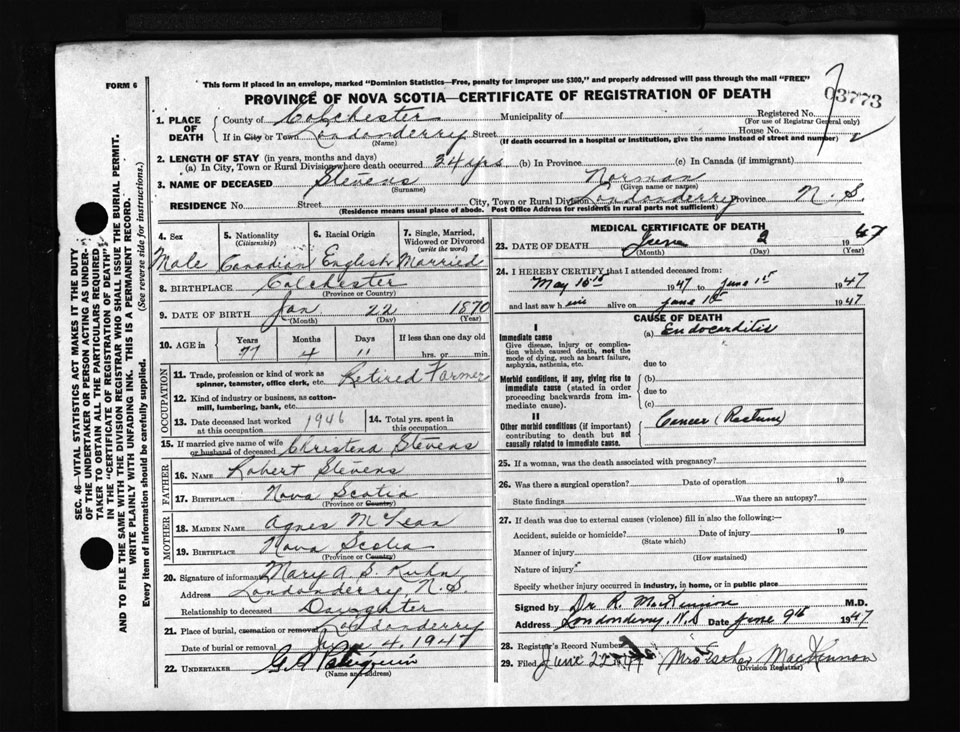 FORM 6
This form if placed in an envelope, marked "Dominion Statistics—Free, penalty for improper use $300," and properly addressed will pass through the mail "FREE"
PROVINCE OF NOVA SCOTIA—CERTIFICATE OF REGISTRATION OF DEATH
03773
1. PLACE OF DEATH
County of Colchester Municipality of Registered No.
(For use of Registrar General only)
If in City or Town Londonderry Street House No.
(Name) (If death occurred in a hospital or institution, give the name instead of street and number)
2. LENGTH OF STAY (in years, months and days)
(a) In City, Town or Rural Division where death occurred 34 yrs (b) In Province (c) In Canada (if immigrant)
3. NAME OF DECEASED Stevens Norman
(Surname) (Given name or names)
RESIDENCE No. Street City, Town or Rural Division Londonderry Province N. S.
(Residence means usual place of abode. Post Office Address for residents in rural parts not sufficient)
4. Sex
Male
5. Nationality
(Citizenship)
Canadian
6. Racial Origin
English
7. Single, Married, Widowed or Divorced
(write the word)
Married
8. BIRTHPLACE Colchester
(Province or Country)
9. DATE OF BIRTH Jan 22 1870
(Month) (Day) (Year)
10. AGE in Years Months Days If less than one day old
77 4 11 hrs. or min.
OCCUPATION
11. Trade, profession or kind of work as spinner, teamster, office clerk, etc. Retired Farmer
12. Kind of industry or business, as cotton-mill, lumbering, bank, etc.
13. Date deceased last worked at this occupation 1946
14. Total yrs. spent in this occupation
15. If married give name of wife or husband of deceased Christena Stevens
FATHER
16. NAME Robert Stevens
17. BIRTHPLACE Nova Scotia
(Province or Country)
MOTHER
18. MAIDEN NAME Agnes McLean
19. BIRTHPLACE Nova Scotia
(Province or Country)
20. Signature of informant Mary A. S. Kuhn
Address Londonderry, N. S.
Relationship to deceased Daughter
21. Place of burial, cremation or removal Londonderry
Date of burial or removal June 4, 1947
22. UNDERTAKER
(Name and address)
MEDICAL CERTIFICATE OF DEATH
23. DATE OF DEATH June 2 1947
(Month) (Day)
24. I HEREBY CERTIFY that I attended deceased from:
May 15th 1947 to June 1st 1947
and last saw h alive on June 1st 1947
CAUSE OF DEATH
I
Immediate cause
Give disease, injury or complication which caused death, not the mode of dying, such as heart failure, asphyxia, asthenia, etc.
(a) Endocarditis
due to
Morbid conditions, if any, giving rise to immediate cause (stated in order proceeding backwards from immediate cause).
(b)
due to
(c)
II
Other morbid conditions (if important) contributing to death but not causally related to immediate cause.
Cancer (Rectum)
25. If a woman, was the death associated with pregnancy?
26. Was there a surgical operation? Date of operation 19
State findings Was there an autopsy?
27. If death was due to external causes (violence) fill in also the following:—
Accident, suicide or homicide? Date of injury 19
(State which)
Manner of injury
(How sustained)
Nature of injury
Specify whether injury occurred in industry, in home, or in public place
Signed by Dr R. MacKinnon M.D.
Address Londonderry, N.S Date June 9th 1947
28. Registrar's Record Number
29. Filed June 22 47 MacKinnon
(Division Registrar)
SEC. 46—VITAL STATISTICS ACT MAKES IT THE DUTY
OF THE UNDERTAKER OR PERSON ACTING AS UNDERTAKER TO OBTAIN ALL THE PARTICULARS REQUIRED
IN THE "CERTIFICATE OF REGISTRATION OF DEATH"
AND TO FILE THE SAME WITH THE DIVISION REGISTRAR WHO SHALL ISSUE THE BURIAL PERMIT.
WRITE PLAINLY WITH UNFADING INK. THIS IS A PERMANENT RECORD.
Every item of information should be carefully supplied. (See reverse side for instructions.)